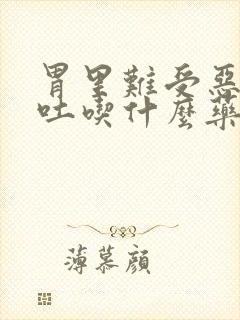 胃里難受惡
吐喫什麼藥
薄慕顔